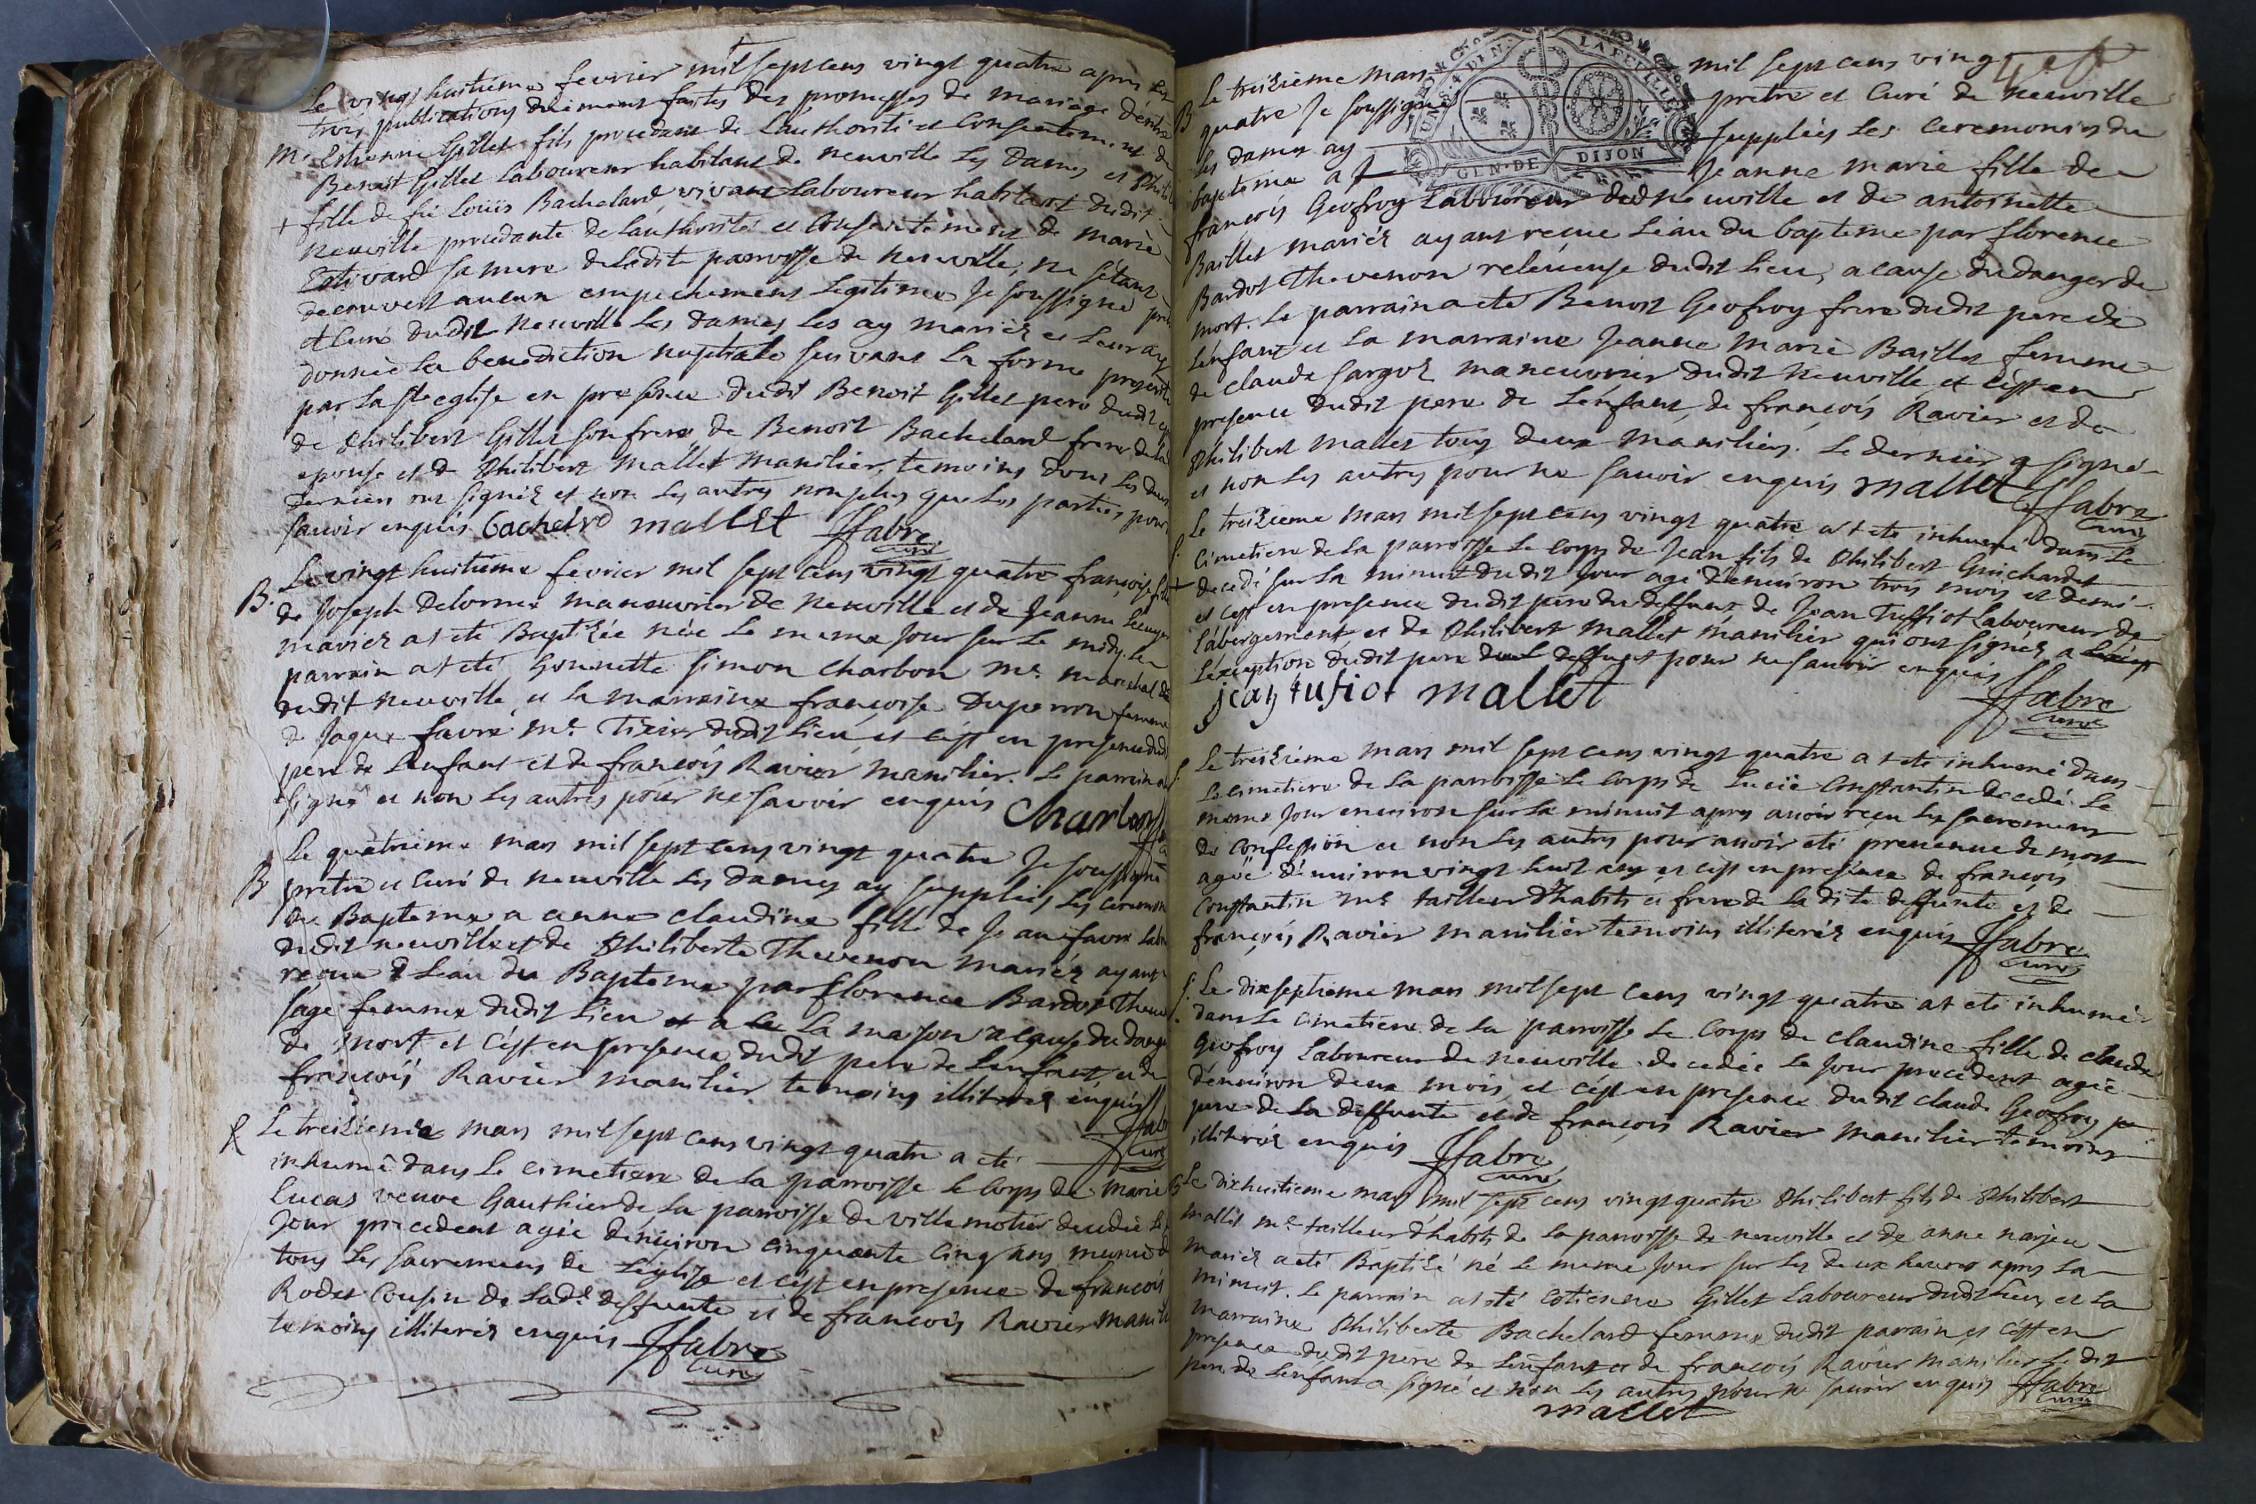 Le vingt huitieme fevrier mil sept cens vingt quatre apres les
trois publications duëment faites des promesses de mariage d'entre
M. Estienne Gillet fils procedant de l'authorité et consentement de
Benoit Gillet laboureur habitant de neuville les dames et Philib
+ fille de feu Loüis Bachelard vivant laboureur habitant dudit
neuville procedante de lauthorité et consentement de marie
Estivard sa mere de ladite parroisse de neuville, ne s'étant
decouvert aucun empechement legitime Je soussigné pre
et curé dudit neuville les dames les ay mariéz et leur ay
donnée la benediction nuptiale suivant la forme prescrite
par la ste eglise en presence dudit Benoit Gillet pere dudit ep
de Philibert Gillet son frere, de Benoit Bachelard frere de la
epouse et de Philibert mallet manilier, temoins dont les deux
derniers ont signéz et non les autres non plus que les parties pour
savoir enquis Bachelrd mallet Ffabre
curé
B. Le vingt huitieme fevrier mil sept cens vingt quatre françoise fille
de Joseph Delorme maneuvrier de neuville et de Jeanne
mariez at eté Baptizée née le meme jour sur le midy. le
parrain at eté Simon Charbon me. marechal de
dudit neuville, et la marraine françoise Duperron femme
de Jaque favre me. Tixier dudit lieu, et c'est en presence dud
pere de l'enfant et de françois Ravier manilier. Le parrain a
signé et non les autres pour ne savoir enquis Charbon
Le quatrieme mars mil sept cens vingt quatre Je soussigné
B pretre et curé de neuville les dames ay supplées les ceremon
de Bapteme a anne claudine fille de Jean favre labr
dudit neuville et de Philiberte Thevenon mariéz ayant
recue l'eau du Bapteme par florence Bardot Theve
sage femme dudit lieu a la maison a cause du dange
de mort et c'est en presence dudit pere de l'enfant et de
françois Ravier manilier temoins illiterez enquis
Ffab
curé
Le treizieme mars mil sept cens vingt quatre a eté
inhumé dans le cimetiere de la parroisse le corps de marie
Lucas veuve Gauthier de la parroisse de villemotier decedée le
jour precedent agée d'environ cinquante cinq ans munie de
tous les sacremens de l'eglise et c'est en presence de françois
Rodet cousin de lade. deffunte et de françois Ravier manil
temoins illiteréz enquis Ffabre
curé
B Le treizieme mars mil sept cens vingt
quatre Je soussigné pretre et curé de neuville
les dames ay supplées les ceremonies du
bapteme a Jeanne marie fille de
françois Geofroy laboureur dud neuville et de antoinette
Baillet mariéz ayant recue l'eau du bapteme par florence
Bardot Thevenon releveuse dudit lieu, a cause du danger de
mort. Le parrain a eté Benoit Geofroy frere dudit pere de
l'enfant et la marraine Jeanne Marie Baillet femme
de claude maneuvrier dudit neuville et c'est en
presence dudit pere de l'enfant, de françois Ravier et de
Philibert mallet tous deux maniliers. Le dernier a signé
et non les autres pour ne savoir enquis mallet Ffabre
curé
Le treizieme mars mil sept cens vingt quatre at eté inhumé dans le
cimetiere de la parroisse le corps de Jean fils de Philibert Guichardet
+ decedé sur la minuit dudit jour agé d'environ trois mois et demi
et c'est en presence dudit pere du deffunt de Jean Tuffiot laboureur de
l'abergement, et de Philibert mallet manilier qui ont signéz a
l'exception dudit pere pour ne savoir enquis
jean tufiot mallet Ffabre
curé
Le treizieme mars mil sept cens vingt quatre at eté inhumé dans
le cimetiere de la parroisse le corps de Lucie constantin decedé le
meme jour environ sur la minuit apres avoir reçu les sacremens
de confession et non les autres pour avoir eté prevenue de mort
agée d'environ vingt huit ans et c'est en presence de françois
constantin me. tailleur d'habits et frere de la dite deffunte, et de
françois Ravier manilier temoins illiteréz enquis Ffabre
curé
Le dixseptieme mars mil sept cens vingt quatre at eté inhumé
dans le cimetiere de la parroisse le corps de claudine fille de claude
Geofroy laboureur de neuville decedée le jour precedent agée
d'environ deux mois, et c'est en presence dudit claude Geofroy
pere de la deffunte et de françois Ravier manilier temoins
illiteréz enquis Ffabre
curé
B Le dixhuitieme mars mil sept cens vingt quatre Philibert fils de Philibert
mallet me. tailleur d'habits de la parroisse de neuville et de anne narjeu
mariéz a eté Baptizé né le meme jour sur les deux heures apres la
minuit. le parrain at eté etienne Gillet laboureur dudt lieu, et la
marraine Philiberte Bachelard femme dudit parrain, et c'est en
presence dudit pere de l'enfant et de françois Ravier manilier. Le dit
pere de l'enfant a signé et non les autres pour ne savoir enquis Ffabre
curé
mallet
LA FEVILLE
GEN. DE DIJON